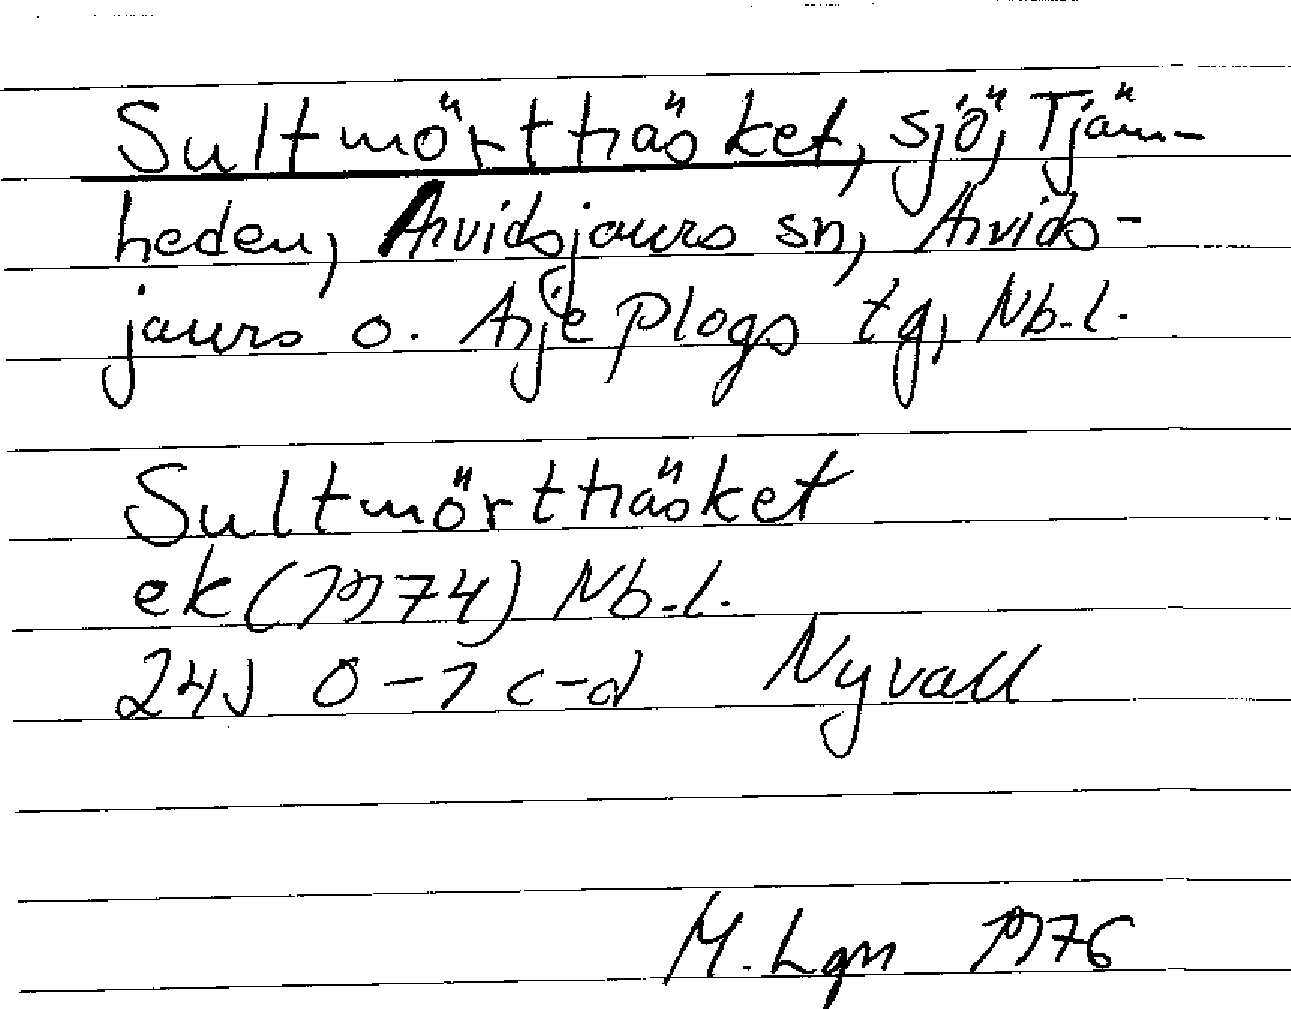 Sultmörtträsket, sjö, Tjäm-
heden, Arvidsjaurs sn, Arvids-
jaurs o. Arjeplogs tg, Nb.l.
Sultmörtträsket
ek (1974) Nb.l.
24J 0-1 c-d Nyvall
M. Lgm 1976